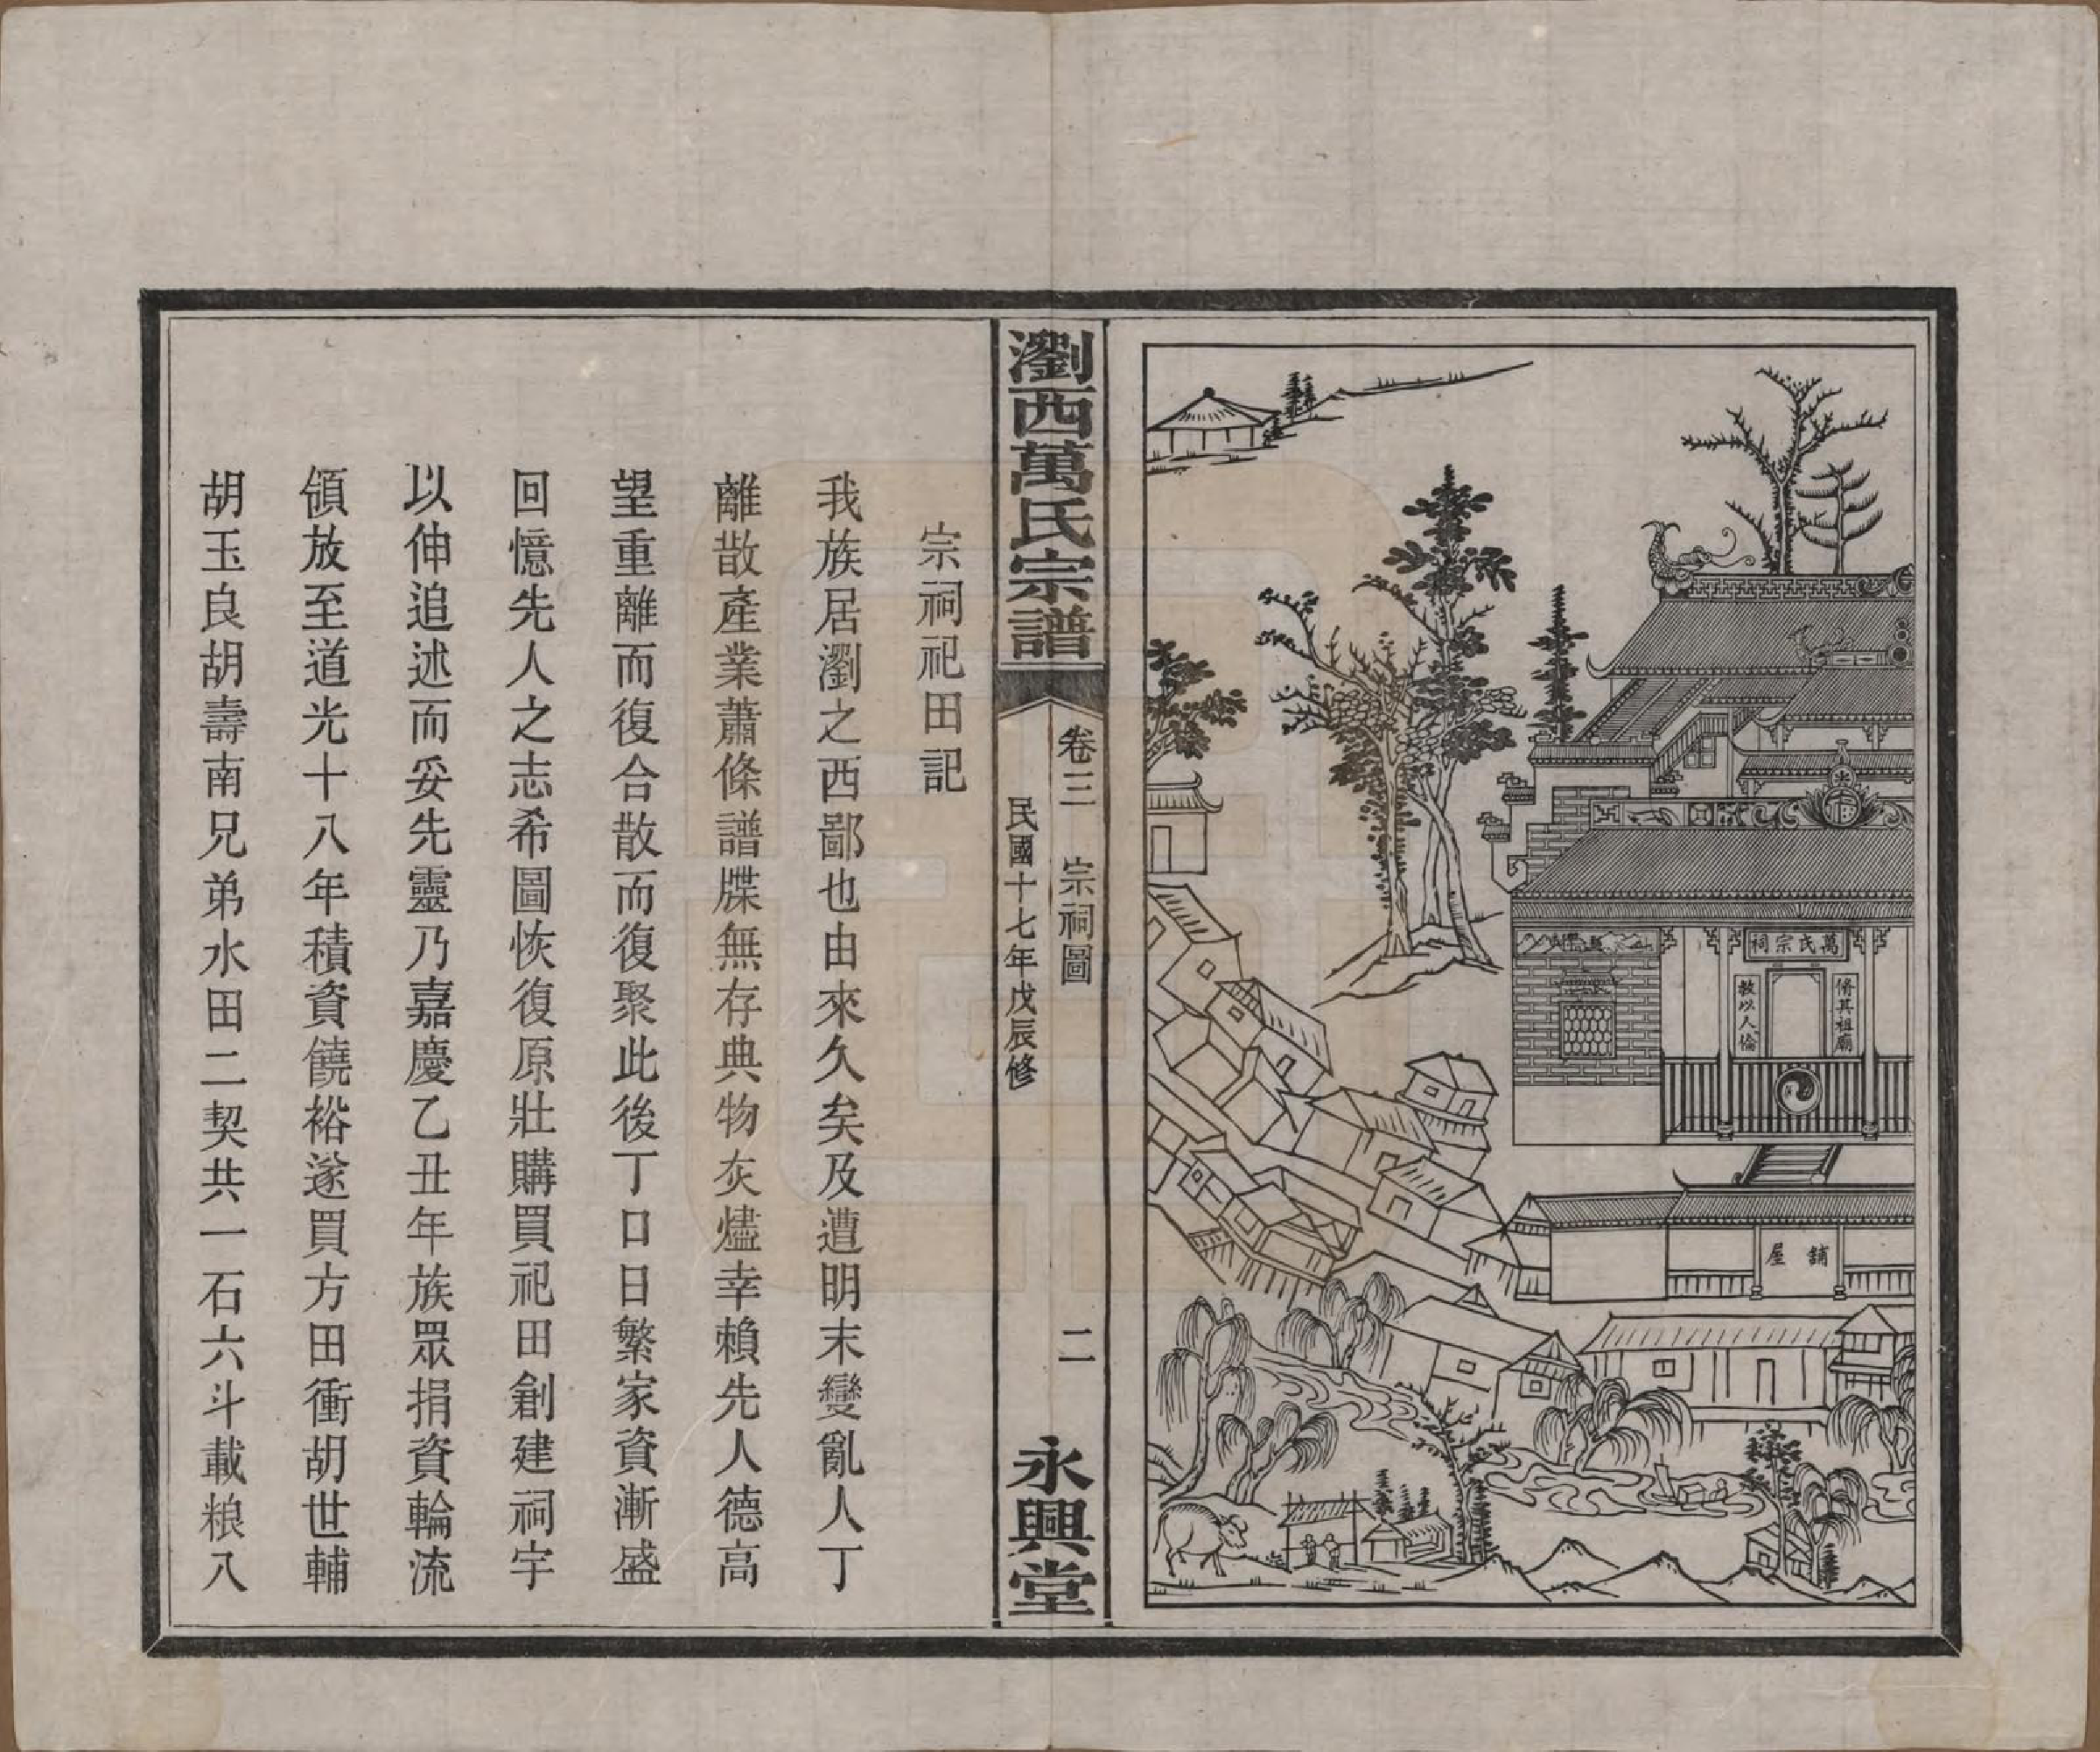 萬氏宗祠
脩其祖廟
教以人倫
舖屋
瀏西萬氏宗譜
卷三 宗祠圖 二
民國十七年戊辰修
永興堂
宗祠祀田記
我族居瀏之西鄙也由來久矣及遭明末變亂人丁
離散產業蕭條譜牒無存典物灰燼幸賴先人德高
望重離而復合散而復聚此後丁口日繁家資漸盛
回憶先人之志希圖恢復原壯購買祀田創建祠宇
以伸追述而妥先靈乃嘉慶乙丑年族眾捐資輪流
領放至道光十八年積資饒裕遂買方田衝胡世輔
胡玉良胡壽南兄弟水田二契共一石六斗載粮八